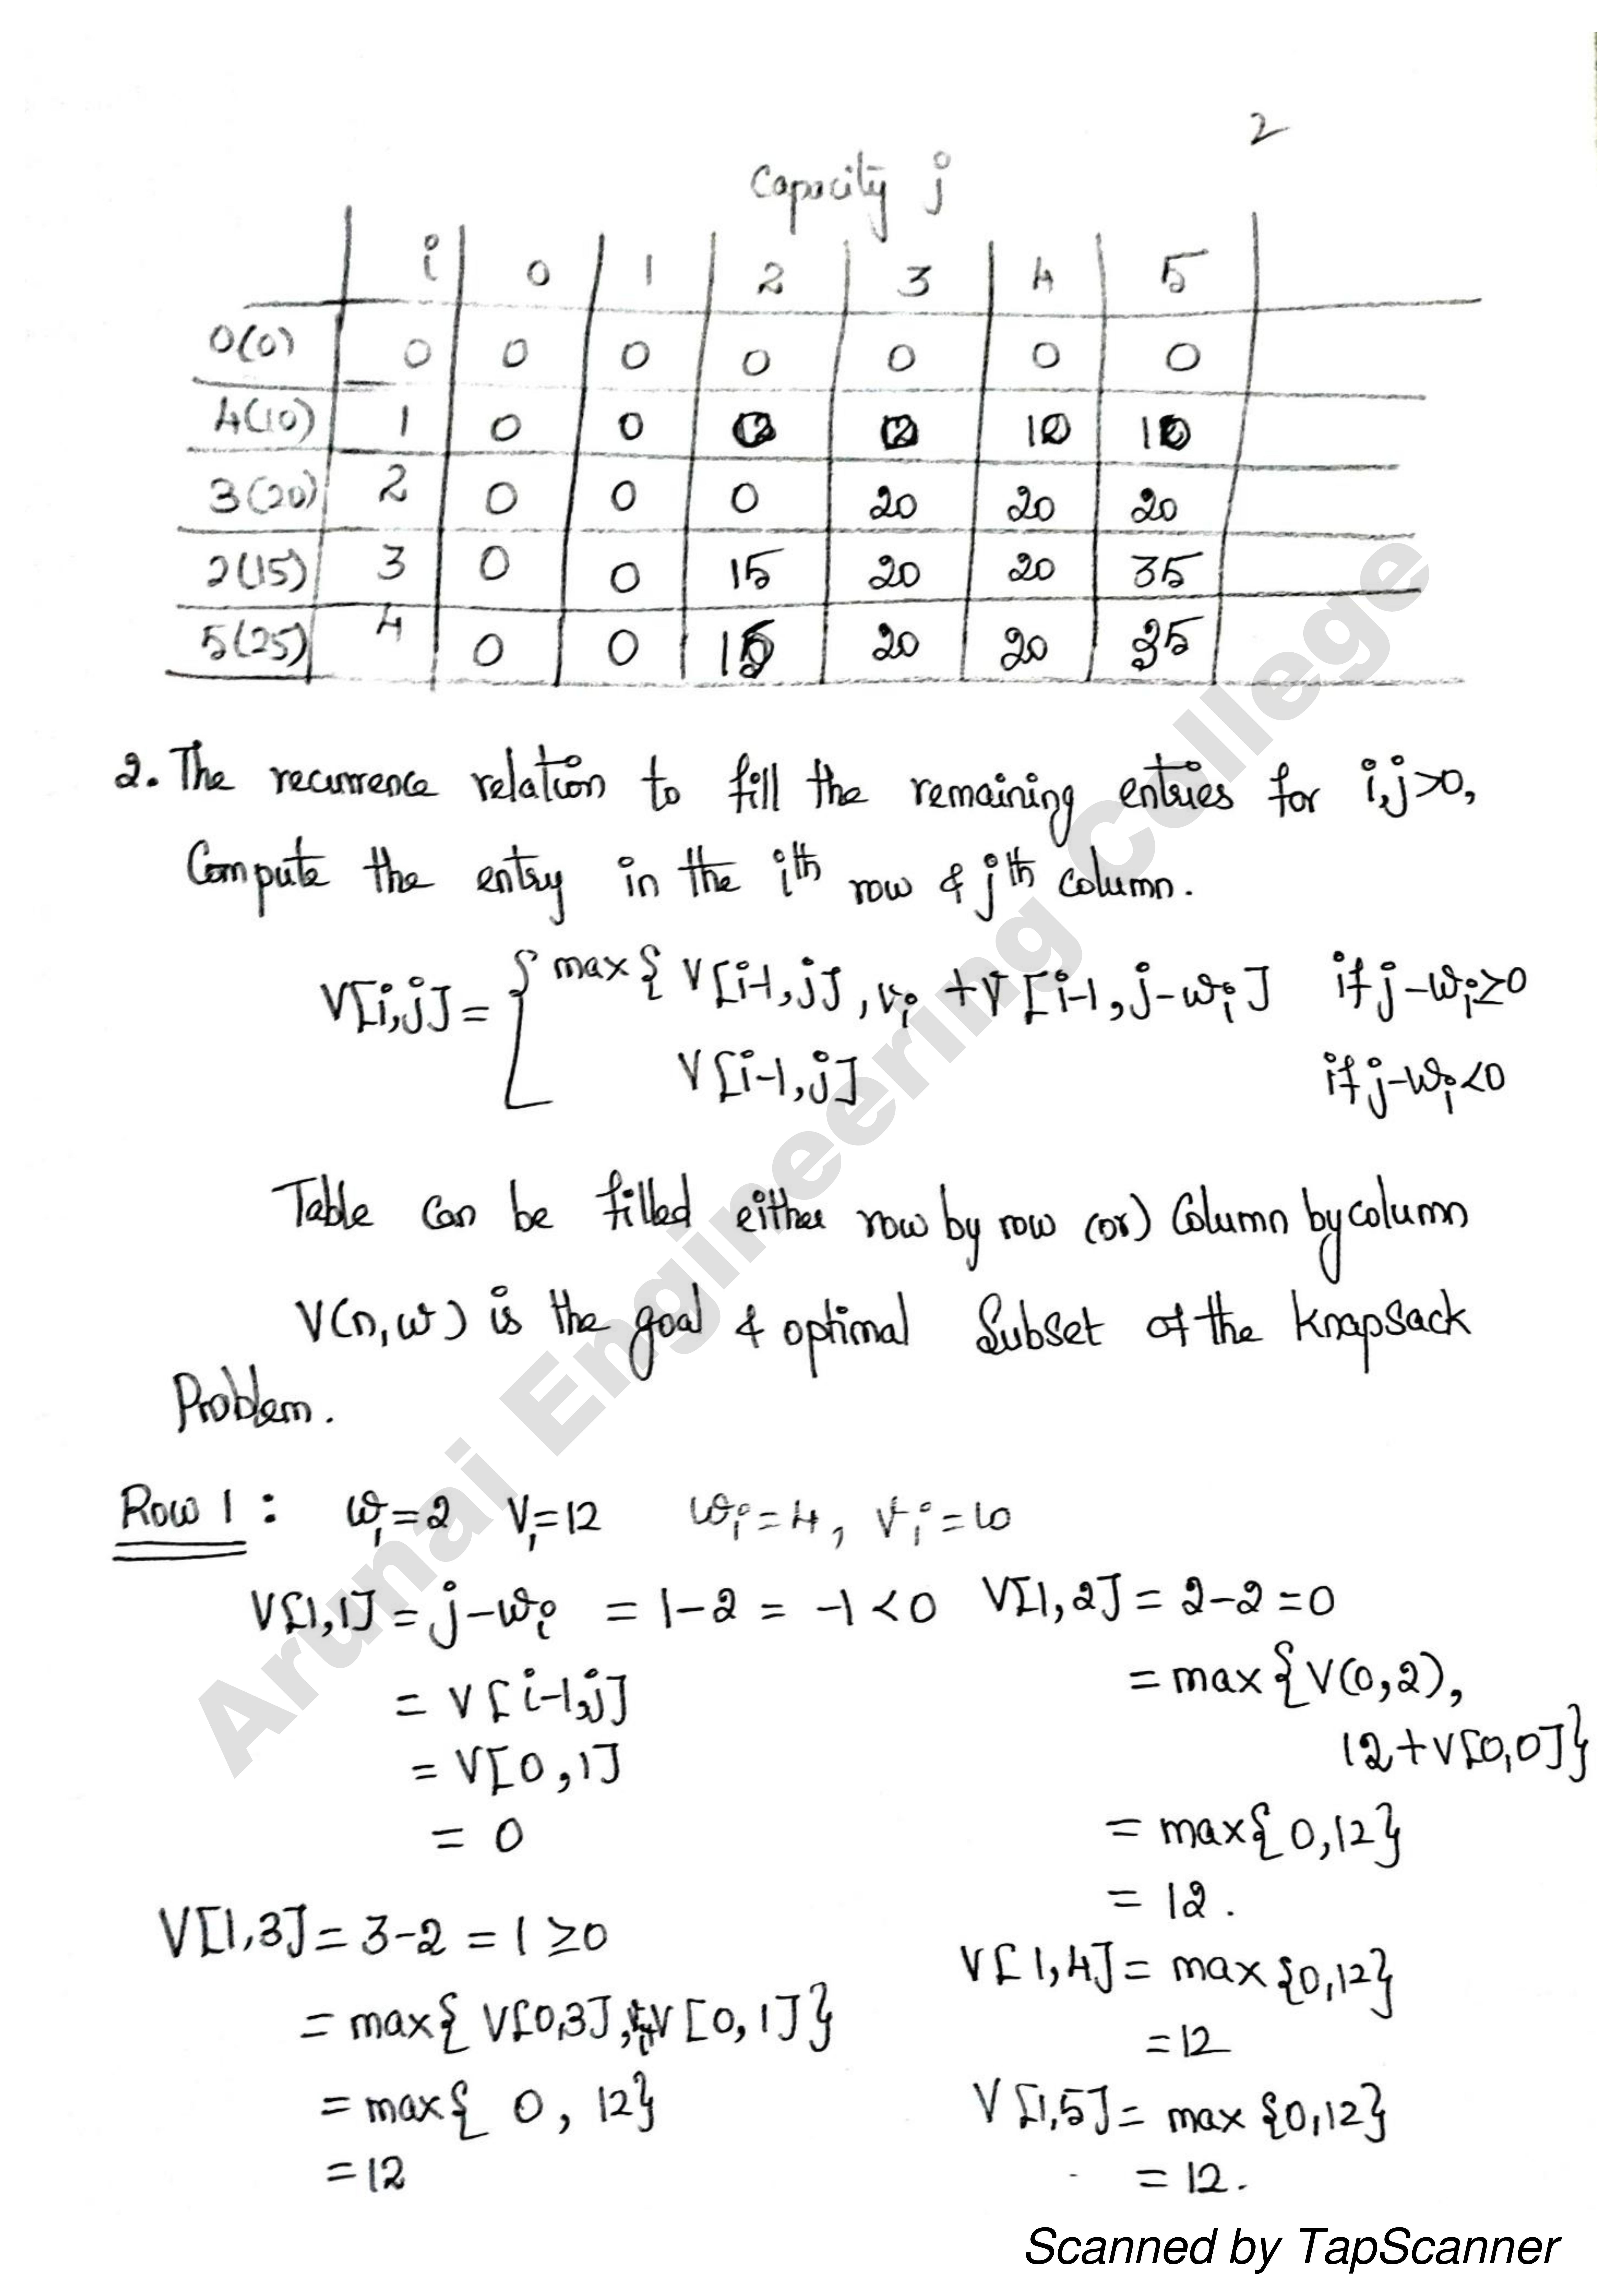 2
Capacity j
i 0 1 2 3 4 5
0(0) 0 0 0 0 0 0 0
4(10) 1 0 0 0 0 10 10
3(20) 2 0 0 0 20 20 20
2(15) 3 0 0 15 20 20 35
5(25) 4 0 0 15 20 20 35
2. The recurrence relation to fill the remaining entries for i,j>0,
Compute the entry in the ith row & jth column.
V[i,j] = { max{ V[i-1,j], vi + V[i-1, j-wi] if j-wi≥0
V[i-1,j] if j-wi<0
Table can be filled either row by row (or) Column by column
V(n,w) is the goal & optimal Subset of the knapsack
Problem.
Row 1 : w1=2 V1=12 wi=4, vi=10
V[1,1] = j-wi = 1-2 = -1 <0 V[1,2] = 2-2 =0
= V[i-1,j] = max{V(0,2),
12+V[0,0]}
= V[0,1]
= 0 = max{0,12}
= 12.
V[1,3] = 3-2 = 1 ≥0
V[1,4] = max{0,12}
= max{ V[0,3], +V[0,1]}
=12
= max{ 0, 12} V[1,5] = max {0,12}
=12 = 12.
Arunai Engineering College
Scanned by TapScanner